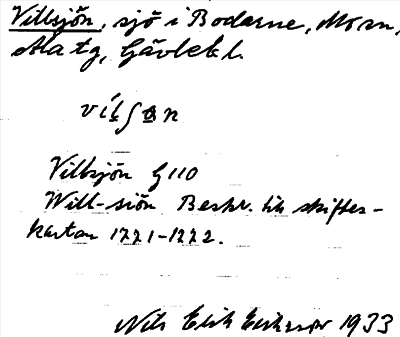 Villsjön, sjö i Bodarne, Mo sn,
Ala tg, Gävleb l.
Villsjön G 110
Will-siön Beskr. till skiftes-
kartan 1771-1772.
Nils Erik Eriksson 1933